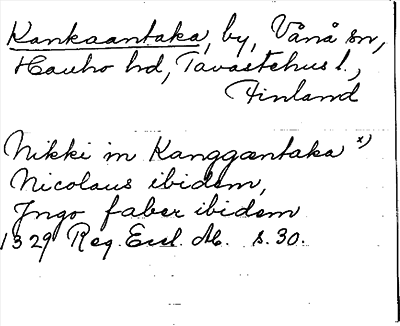 Kankaantaka, by, Vånå sn,
Hauho hd, Tavastehus l.,
Finland
Nikki in Kanggæntaka x)
Nicolaus ibidem,
Jngo faber ibidem
1329 Reg. Eccl. Ab. s. 30.